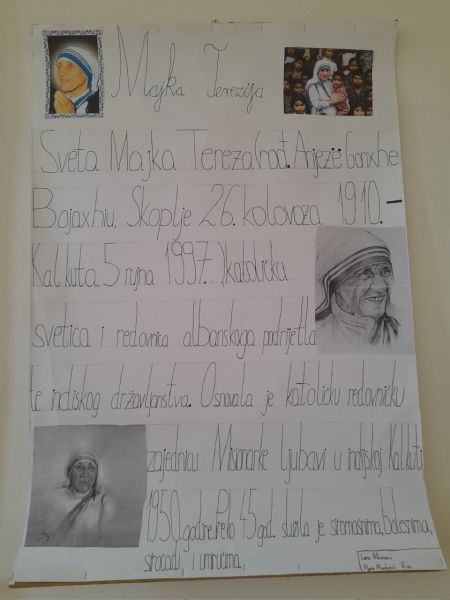 Majka Terezija
Sveta Majka Tereza (rođ. Anjezë Gonxhe
Bojaxhiu, Skoplje 26. kolovoza 1910. –
Kalkuta, 5 rujna 1997.) katolička
svetica i redovnica albanskoga podrijetla
te indiskog državljanstva. Osnovala je katoličku redovničku
zajednicu Misionarke ljubavi u indijskoj Kalkuti
1950. godine. Preko 45 god. služila je siromašnima, bolesnima,
siročadi, i umirućima,
Lara
6.a